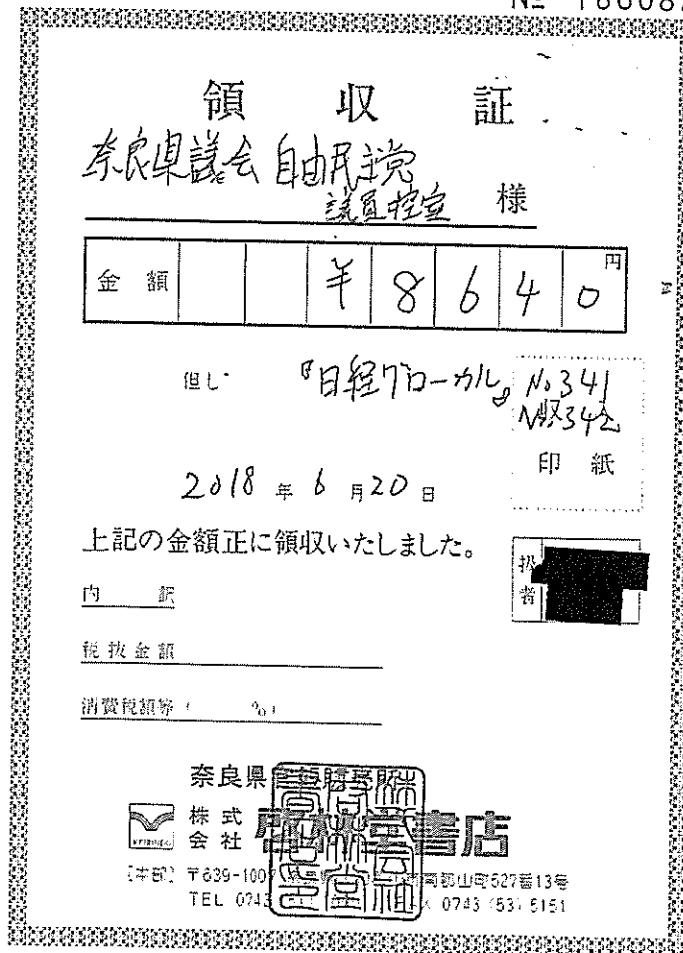 領収証
奈良県議会 自由民主党
議員控室 様
金額 ¥8640 円
但し 『日経グローカル』 No341
No342
収入
印紙
2018年6月20日
上記の金額正に領収いたしました。
扱者
内訳
税抜金額
消費税額等( %)
奈良県
株式会社 啓林堂書店
[本部] 〒639-1007 南郡山町527番13号
TEL 0743 0743(53)5151